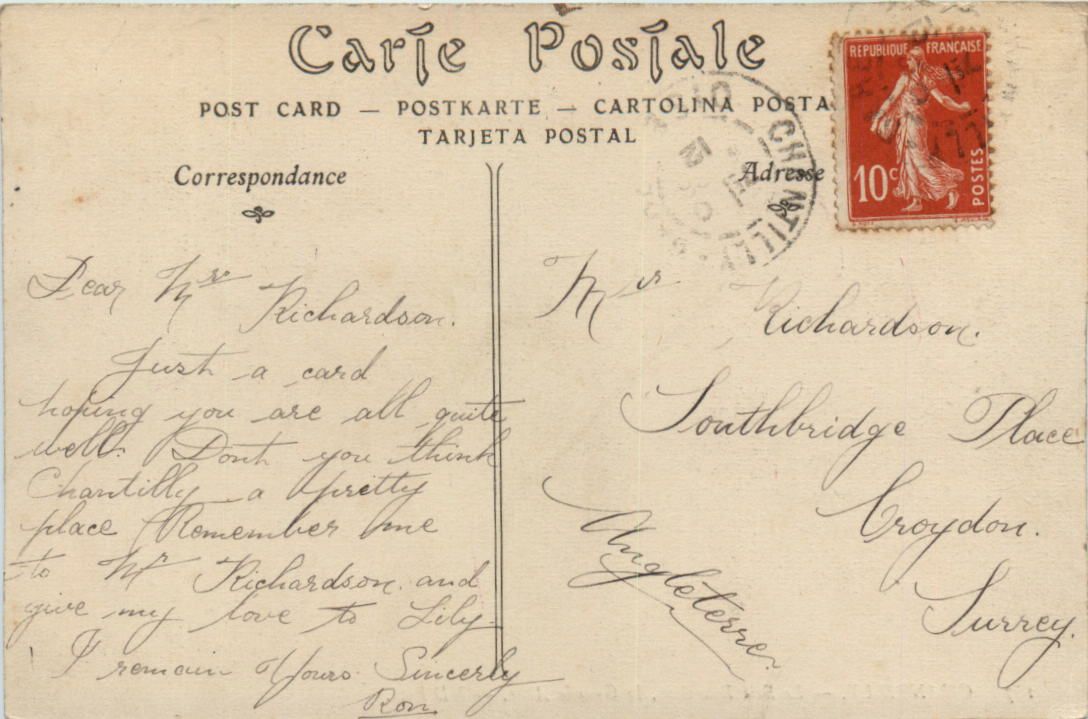 Carte Postale
POST CARD — POSTKARTE — CARTOLINA POSTA
TARJETA POSTAL
Correspondance
Adresse
REPUBLIQUE FRANÇAISE
10c
POSTES
CHANTILLY
Dear Mrs
Richardson.
Just a card
hoping you are all quite
well. Dont you think
Chantilly a pretty
place Remember me
to Mr Richardson and
give my love to Lily.
I remain Yours Sincerly
Ron
Mrs Richardson.
Southbridge Place
Croydon.
Surrey.
Angleterre.